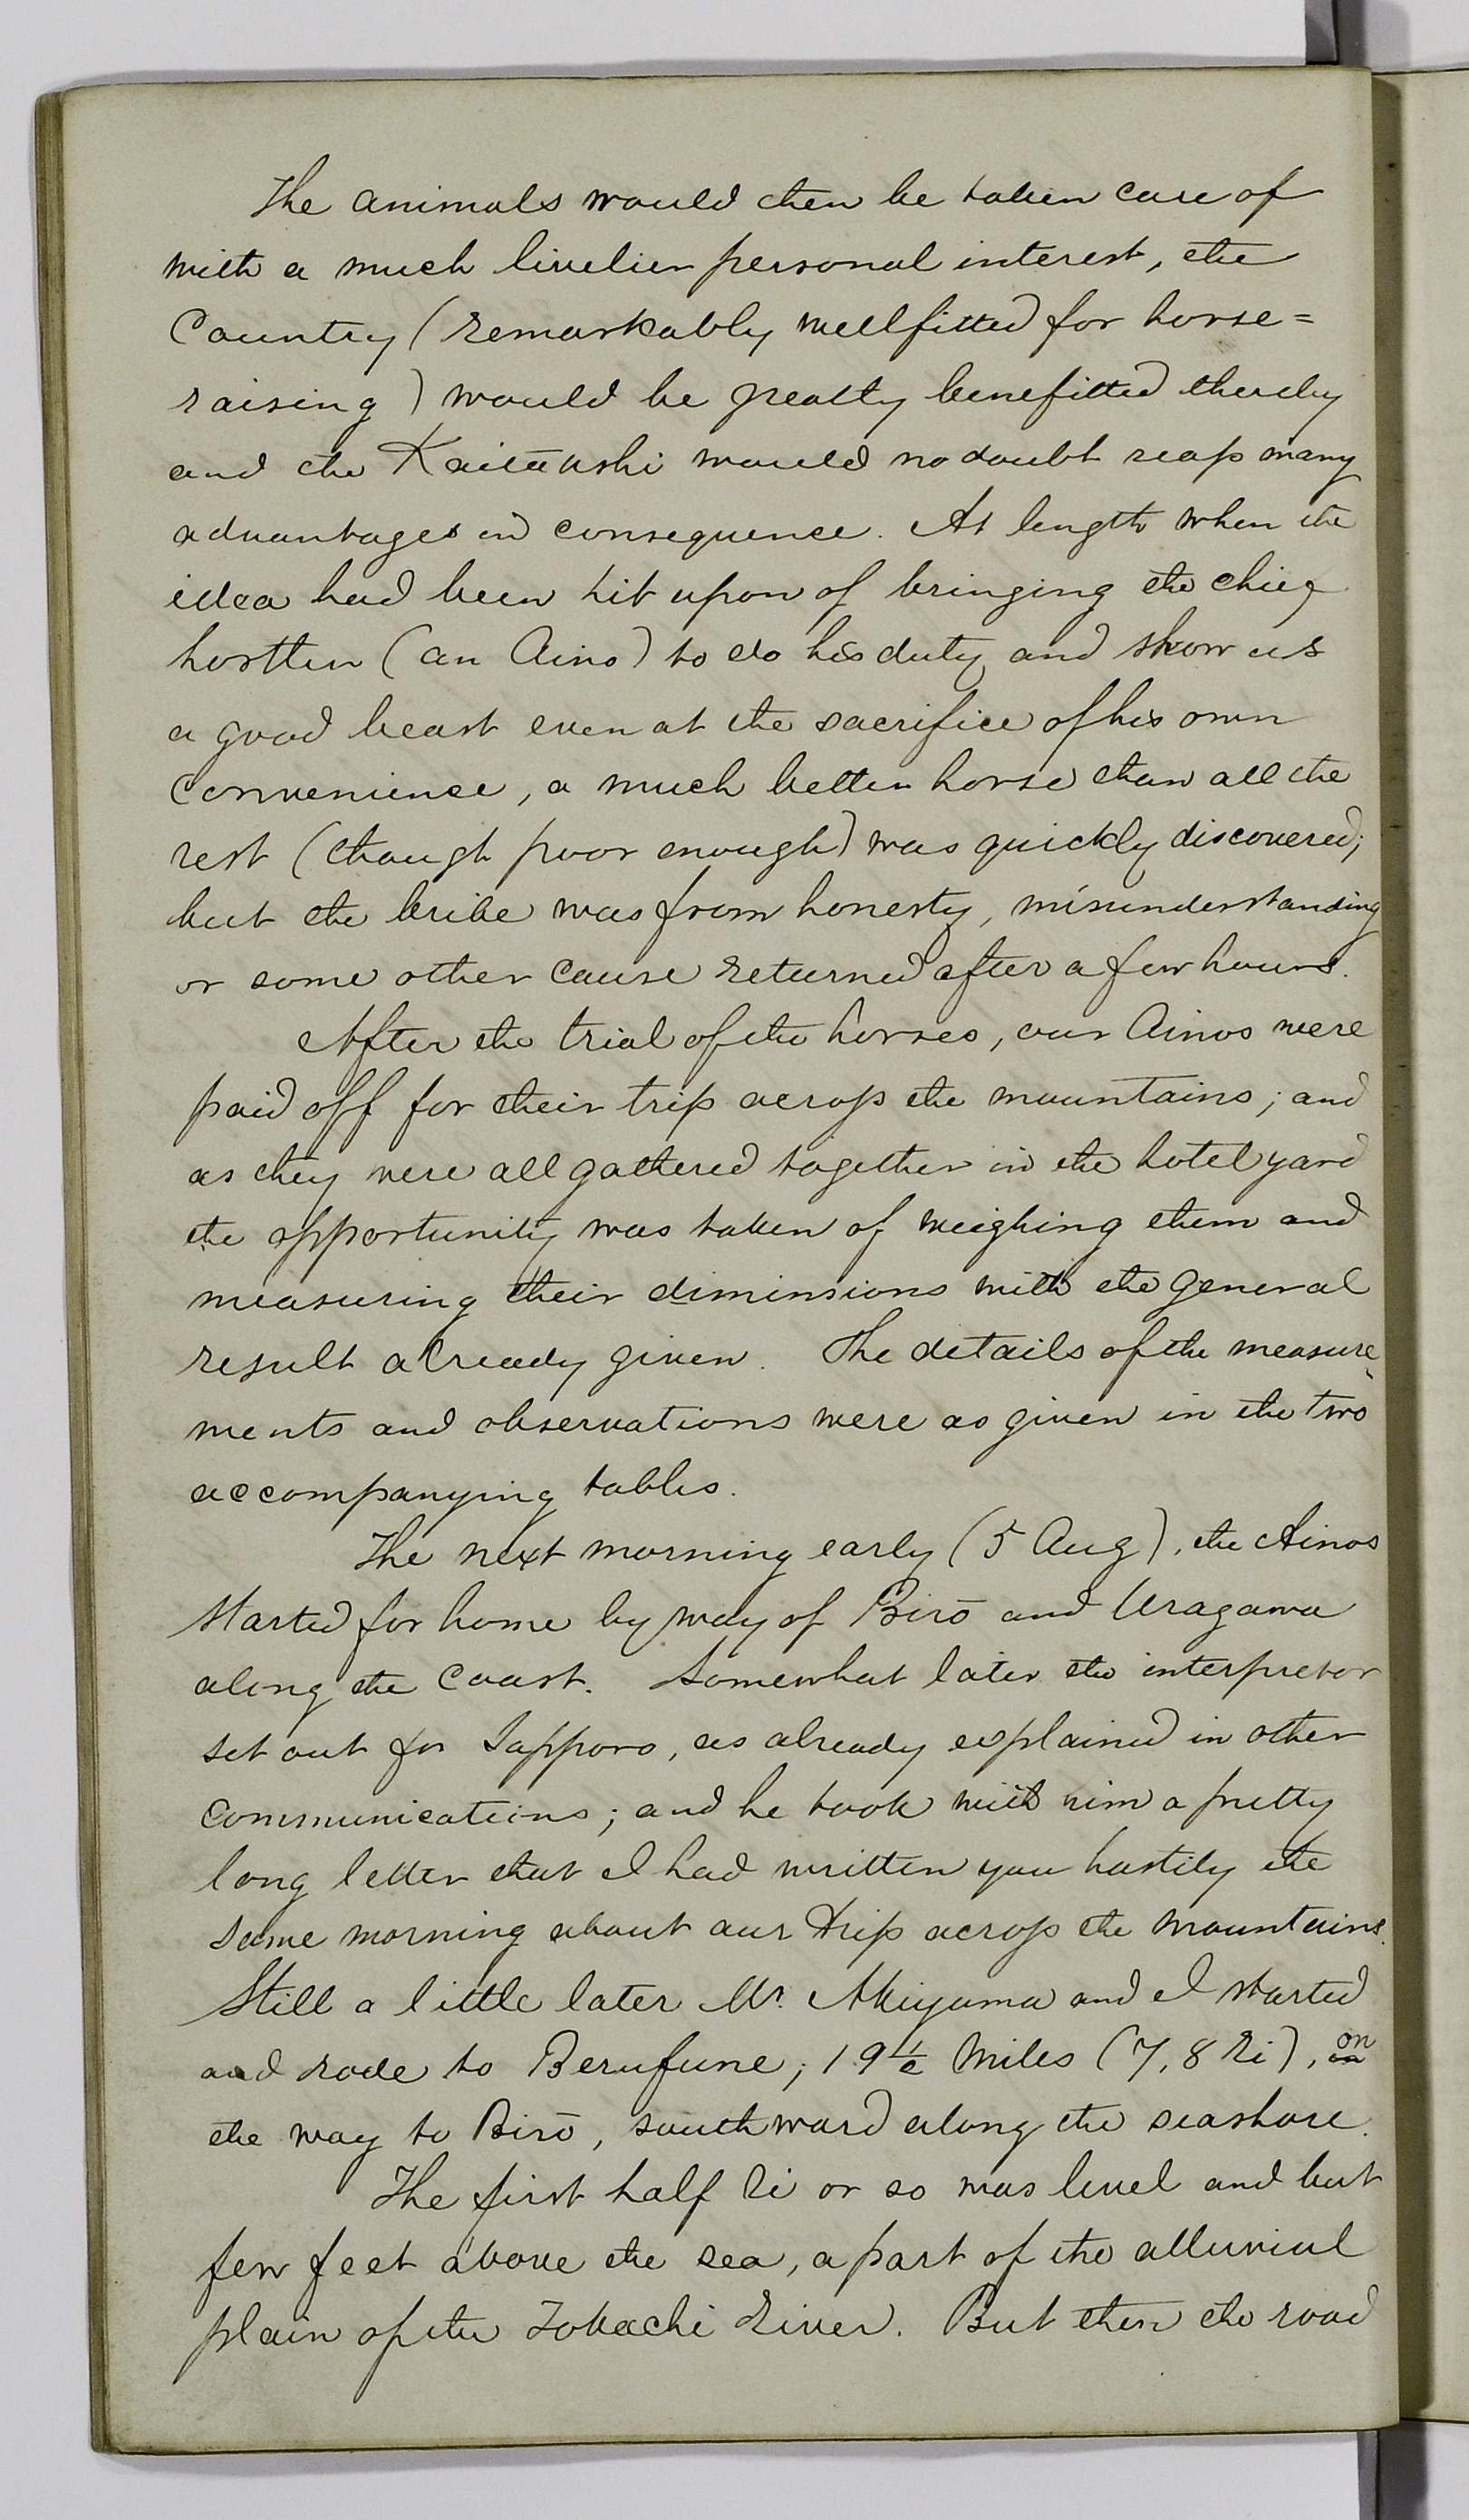 The animals would then be taken care of
with a much livelier personal interest, the
Country (remarkably wellfitted for horse=
raising) would be greatly benefitted thereby
and the Kaitakushi would no doubt reap many
advantages in consequence. At length when the
idea had been hit upon of bringing the chief
hostler (an Aino) to do his duty and show us
a good beast even at the sacrifice of his own
convenience, a much better horse than all the
rest (though poor enough) was quickly discovered;
but the bribe was from honesty, misunderstanding
or some other cause returned after a few hours.
After the trial of the horses, our Ainos were
paid off for their trip across the mountains; and
as they were all gathered together in the hotel yard
the opportunity was taken of weighing them and
measuring their diminsions with the general
result already given. The details of the measure-
ments and observations were as given in the two
accompanying tables.
The next morning early (5 Aug), the Ainos
started for home by way of Birō and Uragawa
along the Coast. Somewhat later the interpretor
set out for Sapporo, as already explained in other
communications; and he took with him a pretty
long letter that I had written you hastily the
same morning about our trip across the mountains.
Still a little later Mr. Akiyama and I started
and rode to Berufune, 19 1/2 Miles (7,8 Ri), on
the way to Birō, southward along the seashore.
The first half Ri or so was level and but
few feet above the sea, a part of the alluvial
plain of the Tokachi River. But then the road